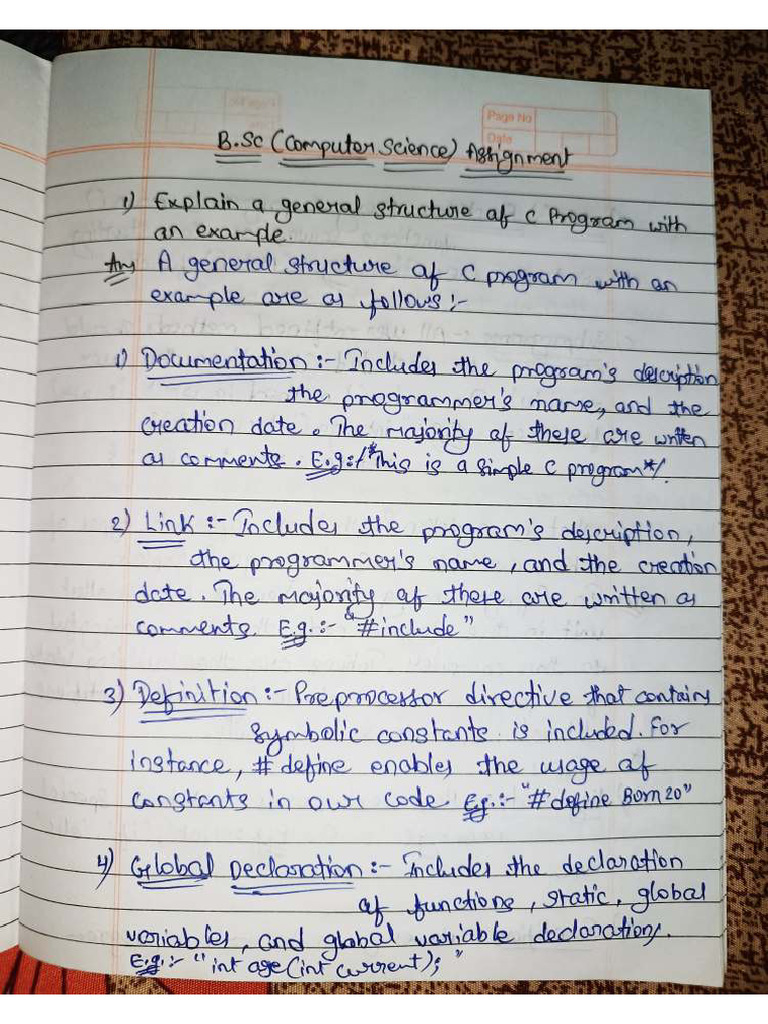 Page No
Date
B.Sc (Computer Science) Assignment
1) Explain a general structure of C Program with
an example.
Ans A general structure of C program with an
example are as follows :-
1) Documentation :- Includes the program's description
the programmer's name, and the
creation date. The majority of these are written
as comments. E.g:/*This is a simple C program*/.
2) Link :- Includes the program's description,
the programmer's name, and the creation
date. The majority of these are written as
comments. E.g. :- "#include"
3) Definition :- Preprocessor directive that contains
symbolic constants is included. For
instance, # define enables the usage of
constants in our code. Eg. :- "# define Born 20"
4) Global Declaration :- Includes the declaration
of functions, static, global
variables, and global variable declarations.
E.g. :- "int age (int current); "